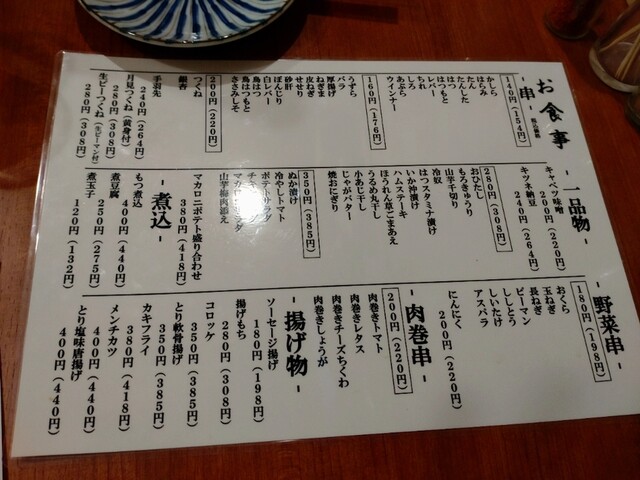 お食事
- 串 -
140円(154円)
かしら
はらみ
たん
たんした
はつもと
レバー
ちれ
しろ
あぶら
ウインナー
160円(176円)
うずら
バラ
厚揚げ
ねぎま
皮ねぎ
せせり
砂肝
ぼんじり
白レバー
鳥はつ
鳥はつもと
ささみしそ
200円(220円)
つくね
銀杏
手羽先
240円(264円)
月見つくね(黄身付)
280円(308円)
生ピーつくね(生ピーマン付)
280円(308円)
- 一品物 -
キャベツ味噌
200円(220円)
キツネ納豆
240円(264円)
280円(308円)
おひたし
もろきゅう
山芋千切り
冷奴
はつスタミナ漬け
いか沖漬け
ハムステーキ
ほうれん草ごまあえ
うるめ丸干し
小あじ干し
じゃがバター
焼おにぎり
350円(385円)
ぬか漬け
冷やしトマト
ポテトサラダ
山芋梅肉添え
マカロニポテト盛り合わせ
380円(418円)
- 煮込 -
もつ煮込
400円(440円)
煮豆腐
250円(275円)
煮玉子
120円(132円)
- 野菜串 -
180円(198円)
おくら
玉ねぎ
長ねぎ
ピーマン
ししとう
しいたけ
アスパラ
にんにく
200円(220円)
- 肉巻串 -
200円(220円)
肉巻きトマト
肉巻きレタス
肉巻きチーズちくわ
肉巻きしょうが
- 揚げ物 -
ソーセージ揚げ
180円(198円)
揚げもち
280円(308円)
コロッケ
350円(385円)
とり軟骨揚げ
350円(385円)
カキフライ
380円(418円)
メンチカツ
400円(440円)
とり塩味唐揚げ
400円(440円)